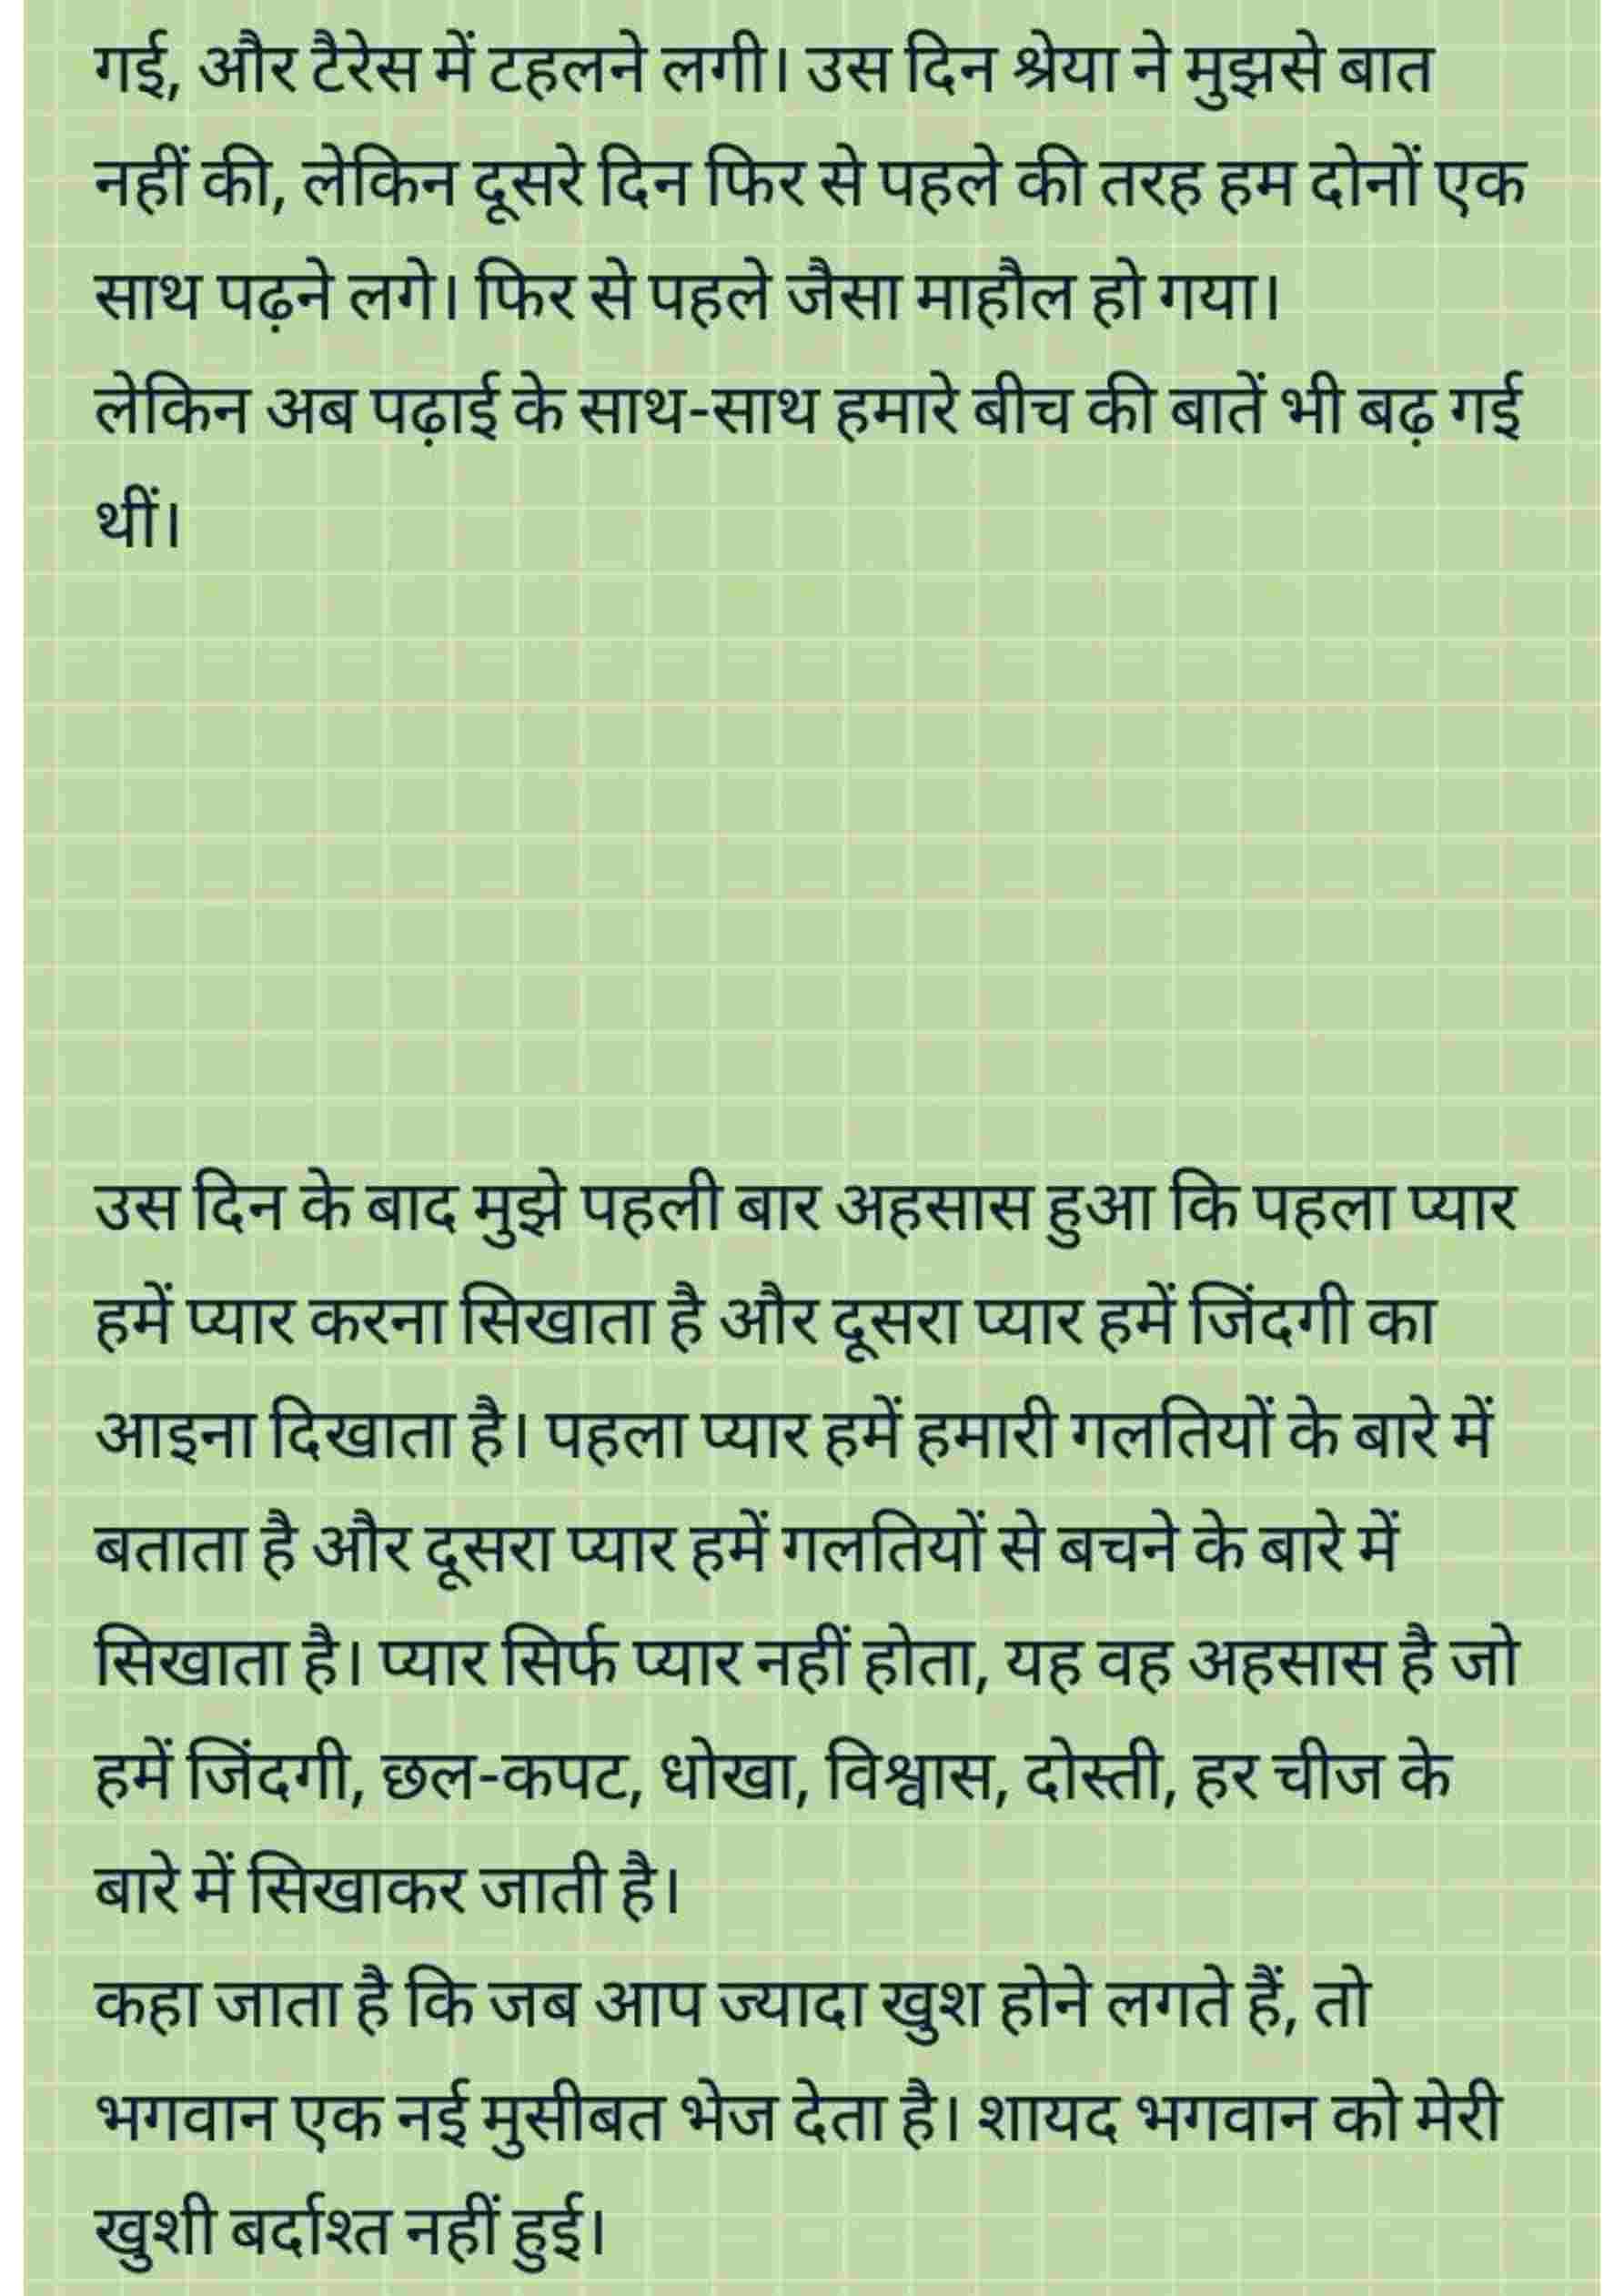 गई, और टैरेस में टहलने लगी। उस दिन श्रेया ने मुझसे बात
नहीं की, लेकिन दूसरे दिन फिर से पहले की तरह हम दोनों एक
साथ पढ़ने लगे। फिर से पहले जैसा माहौल हो गया।
लेकिन अब पढ़ाई के साथ-साथ हमारे बीच की बातें भी बढ़ गई
थीं।
उस दिन के बाद मुझे पहली बार अहसास हुआ कि पहला प्यार
हमें प्यार करना सिखाता है और दूसरा प्यार हमें जिंदगी का
आइना दिखाता है। पहला प्यार हमें हमारी गलतियों के बारे में
बताता है और दूसरा प्यार हमें गलतियों से बचने के बारे में
सिखाता है। प्यार सिर्फ प्यार नहीं होता, यह वह अहसास है जो
हमें जिंदगी, छल-कपट, धोखा, विश्वास, दोस्ती, हर चीज के
बारे में सिखाकर जाती है।
कहा जाता है कि जब आप ज्यादा खुश होने लगते हैं, तो
भगवान एक नई मुसीबत भेज देता है। शायद भगवान को मेरी
खुशी बर्दाश्त नहीं हुई।